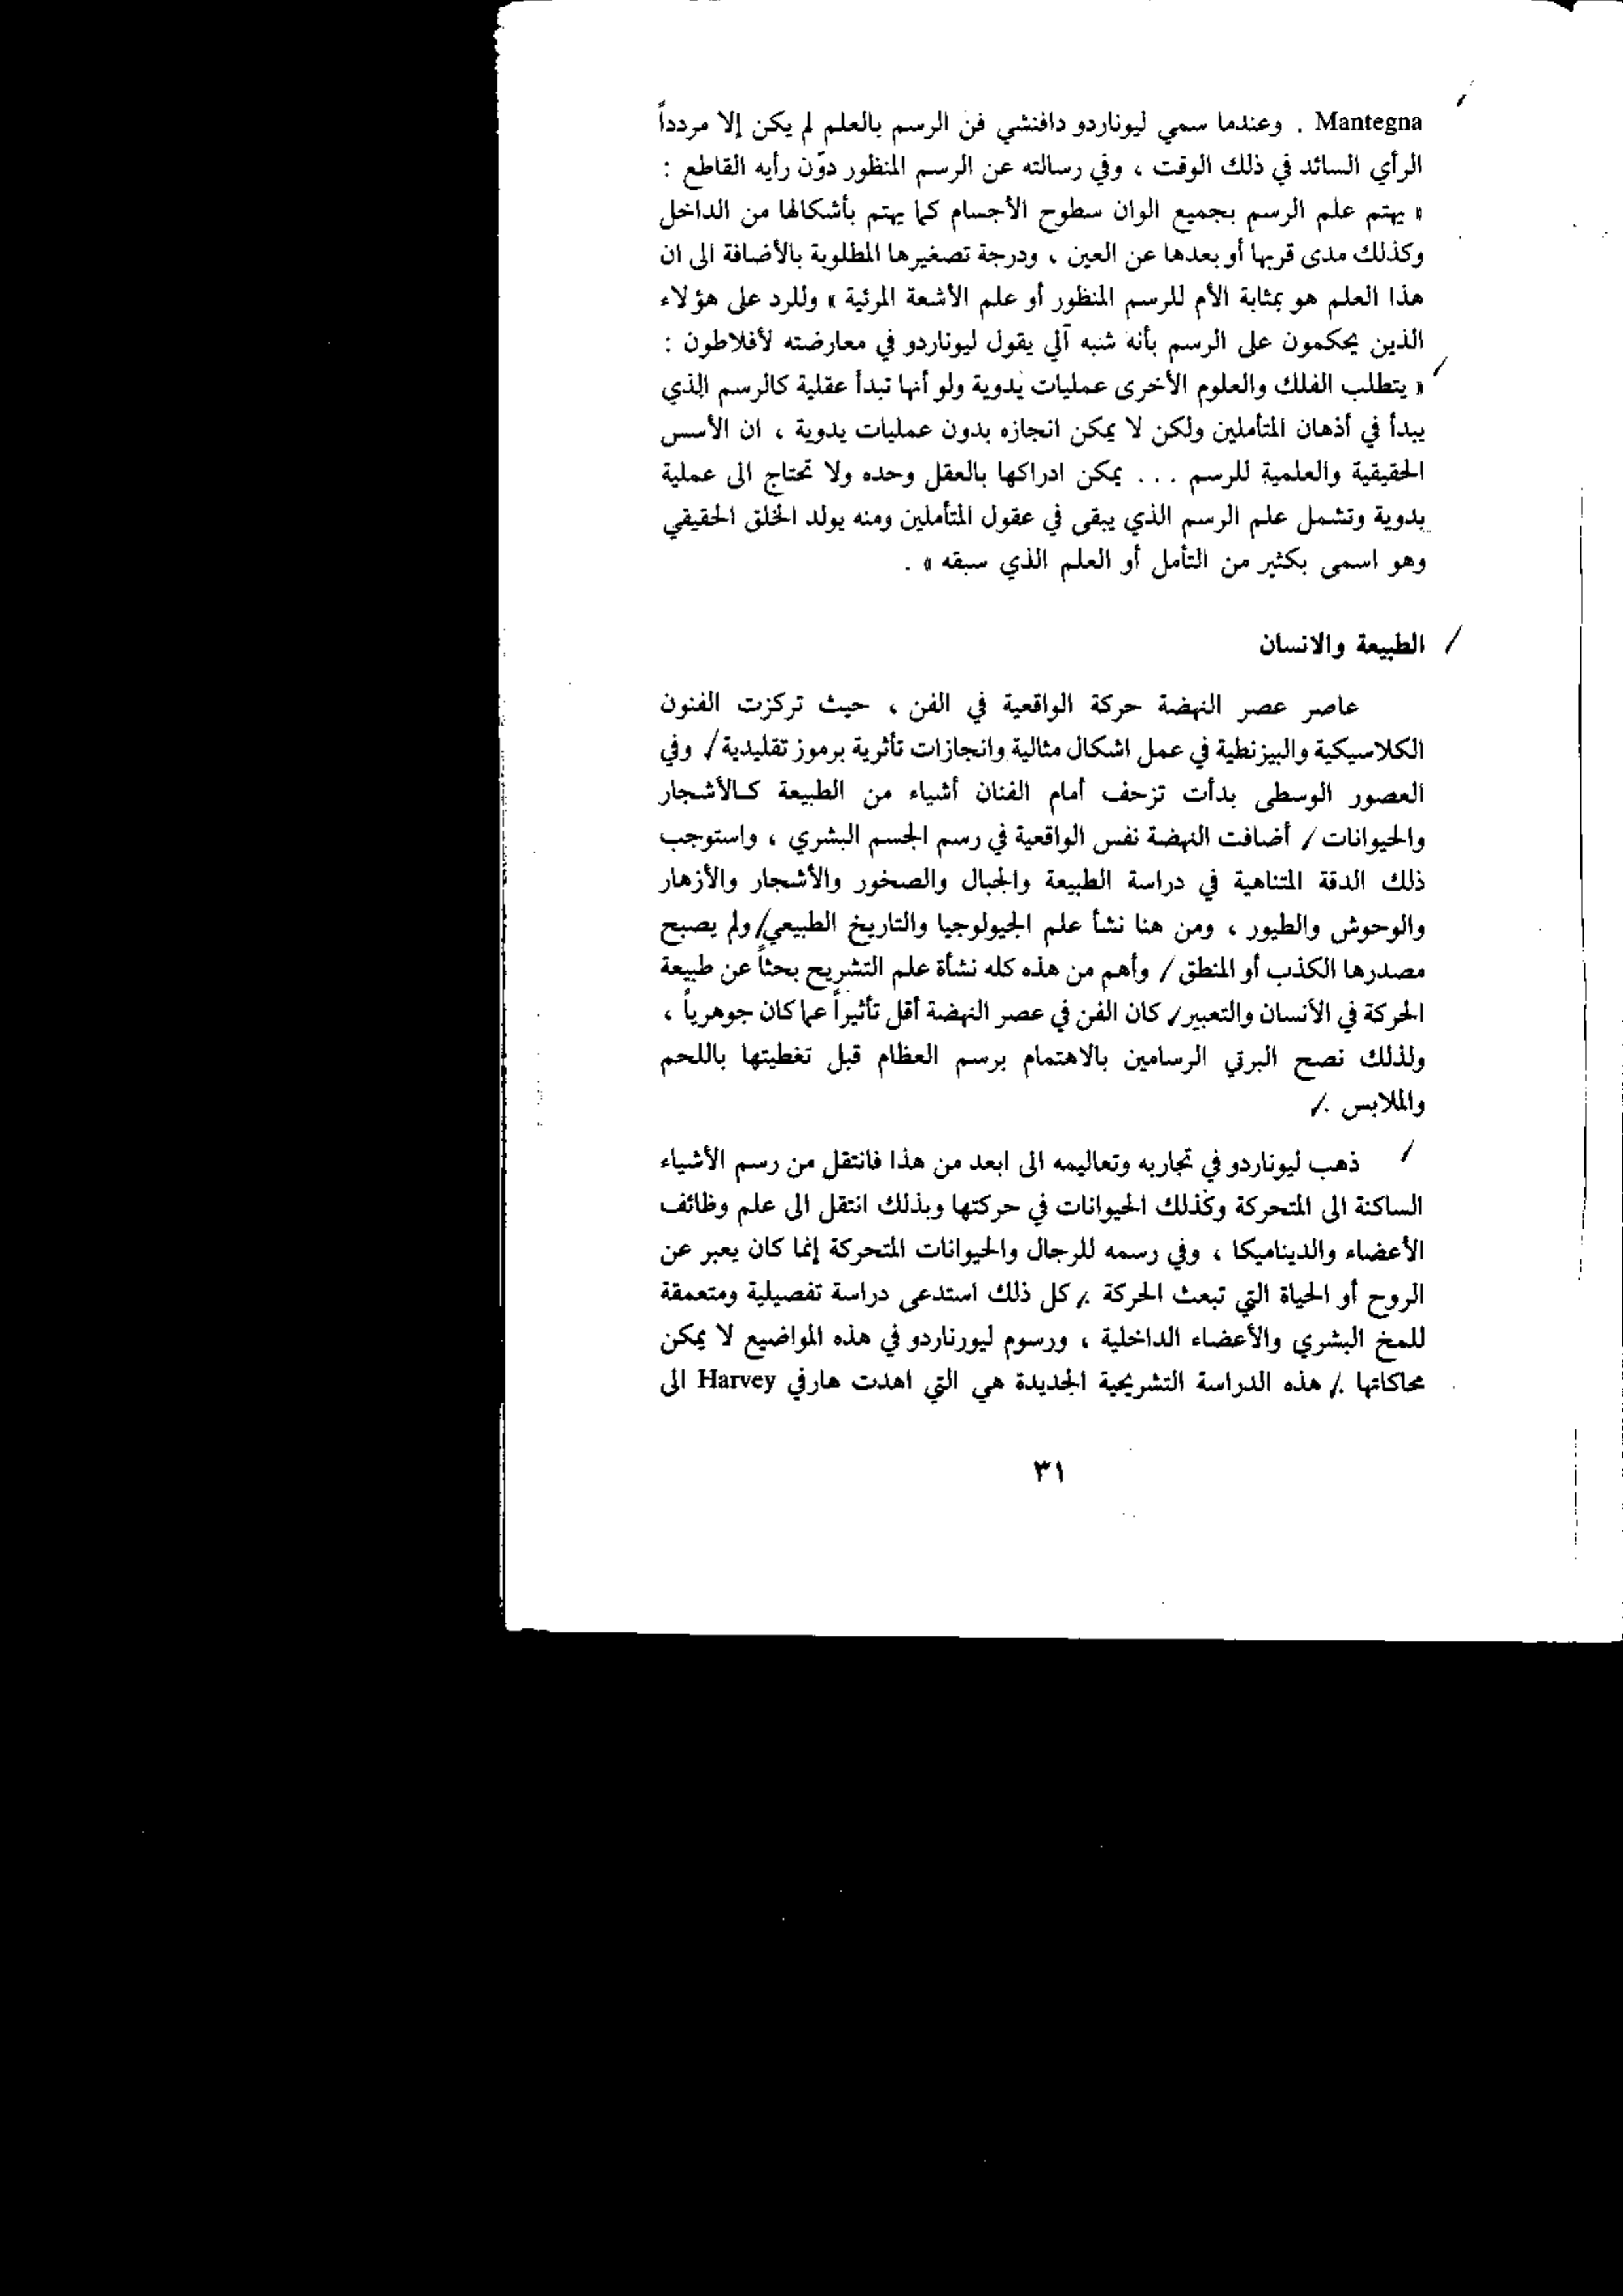 Mantegna . وعندما سمي ليوناردو دافنشي فن الرسم بالعلم لم يكن إلا مردداً
الرأي السائد في ذلك الوقت ، وفي رسالته عن الرسم المنظور دوّن رأيه القاطع :
« يهتم علم الرسم بجميع الوان سطوح الأجسام كما يهتم بأشكالها من الداخل
وكذلك مدى قربها أو بعدها عن العين ، ودرجة تصغيرها المطلوبة بالأضافة الى ان
هذا العلم هو بمثابة الأم للرسم المنظور أو علم الأشعة المرئية » وللرد على هؤلاء
الذين يحكمون على الرسم بأنه شبه آلي يقول ليوناردو في معارضته لأفلاطون :
« يتطلب الفلك والعلوم الأخرى عمليات يدوية ولو أنها تبدأ عقلية كالرسم الذي
يبدأ في أذهان المتأملين ولكن لا يمكن انجازه بدون عمليات يدوية ، ان الأسس
الحقيقية والعلمية للرسم ... يمكن ادراكها بالعقل وحده ولا تحتاج الى عملية
يدوية وتشمل علم الرسم الذي يبقى في عقول المتأملين ومنه يولد الخلق الحقيقي
وهو اسمى بكثير من التأمل أو العلم الذي سبقه » .
/ الطبيعة والانسان
عاصر عصر النهضة حركة الواقعية في الفن ، حيث تركزت الفنون
الكلاسيكية والبيزنطية في عمل اشكال مثالية وانجازات تأثرية برموز تقليدية / وفي
العصور الوسطى بدأت تزحف أمام الفنان أشياء من الطبيعة كالأشجار
والحيوانات / أضافت النهضة نفس الواقعية في رسم الجسم البشري ، واستوجب
ذلك الدقة المتناهية في دراسة الطبيعة والجبال والصخور والأشجار والأزهار
والوحوش والطيور ، ومن هنا نشأ علم الجيولوجيا والتاريخ الطبيعي / ولم يصبح
مصدرها الكذب أو المنطق / وأهم من هذه كله نشأة علم التشريح بحثاً عن طبيعة
الحركة في الأنسان والتعبير / كان الفن في عصر النهضة أقل تأثيراً عما كان جوهرياً ،
ولذلك نصح البرتي الرسامين بالاهتمام برسم العظام قبل تغطيتها باللحم
والملابس . /
/ ذهب ليوناردو في تجاربه وتعاليمه الى ابعد من هذا فانتقل من رسم الأشياء
الساكنة الى المتحركة وكذلك الحيوانات في حركتها وبذلك انتقل الى علم وظائف
الأعضاء والديناميكا ، وفي رسمه للرجال والحيوانات المتحركة إنما كان يعبر عن
الروح أو الحياة التي تبعث الحركة . / كل ذلك استدعى دراسة تفصيلية ومتعمقة
للمخ البشري والأعضاء الداخلية ، ورسوم ليورناردو في هذه المواضيع لا يمكن
محاكاتها . / هذه الدراسة التشريحية الجديدة هي التي اهدت هارفي Harvey الى
٣١